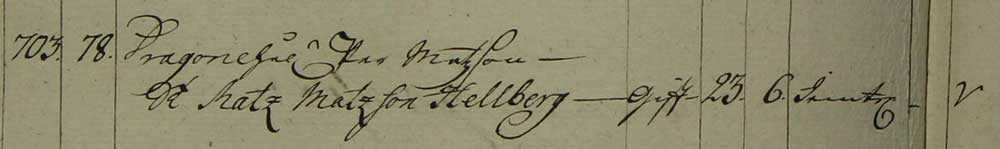 703. 78. Dragonen Per Matzson —
R Matz Matzson Hellberg — Gift – 23. 6. Jemtr – v